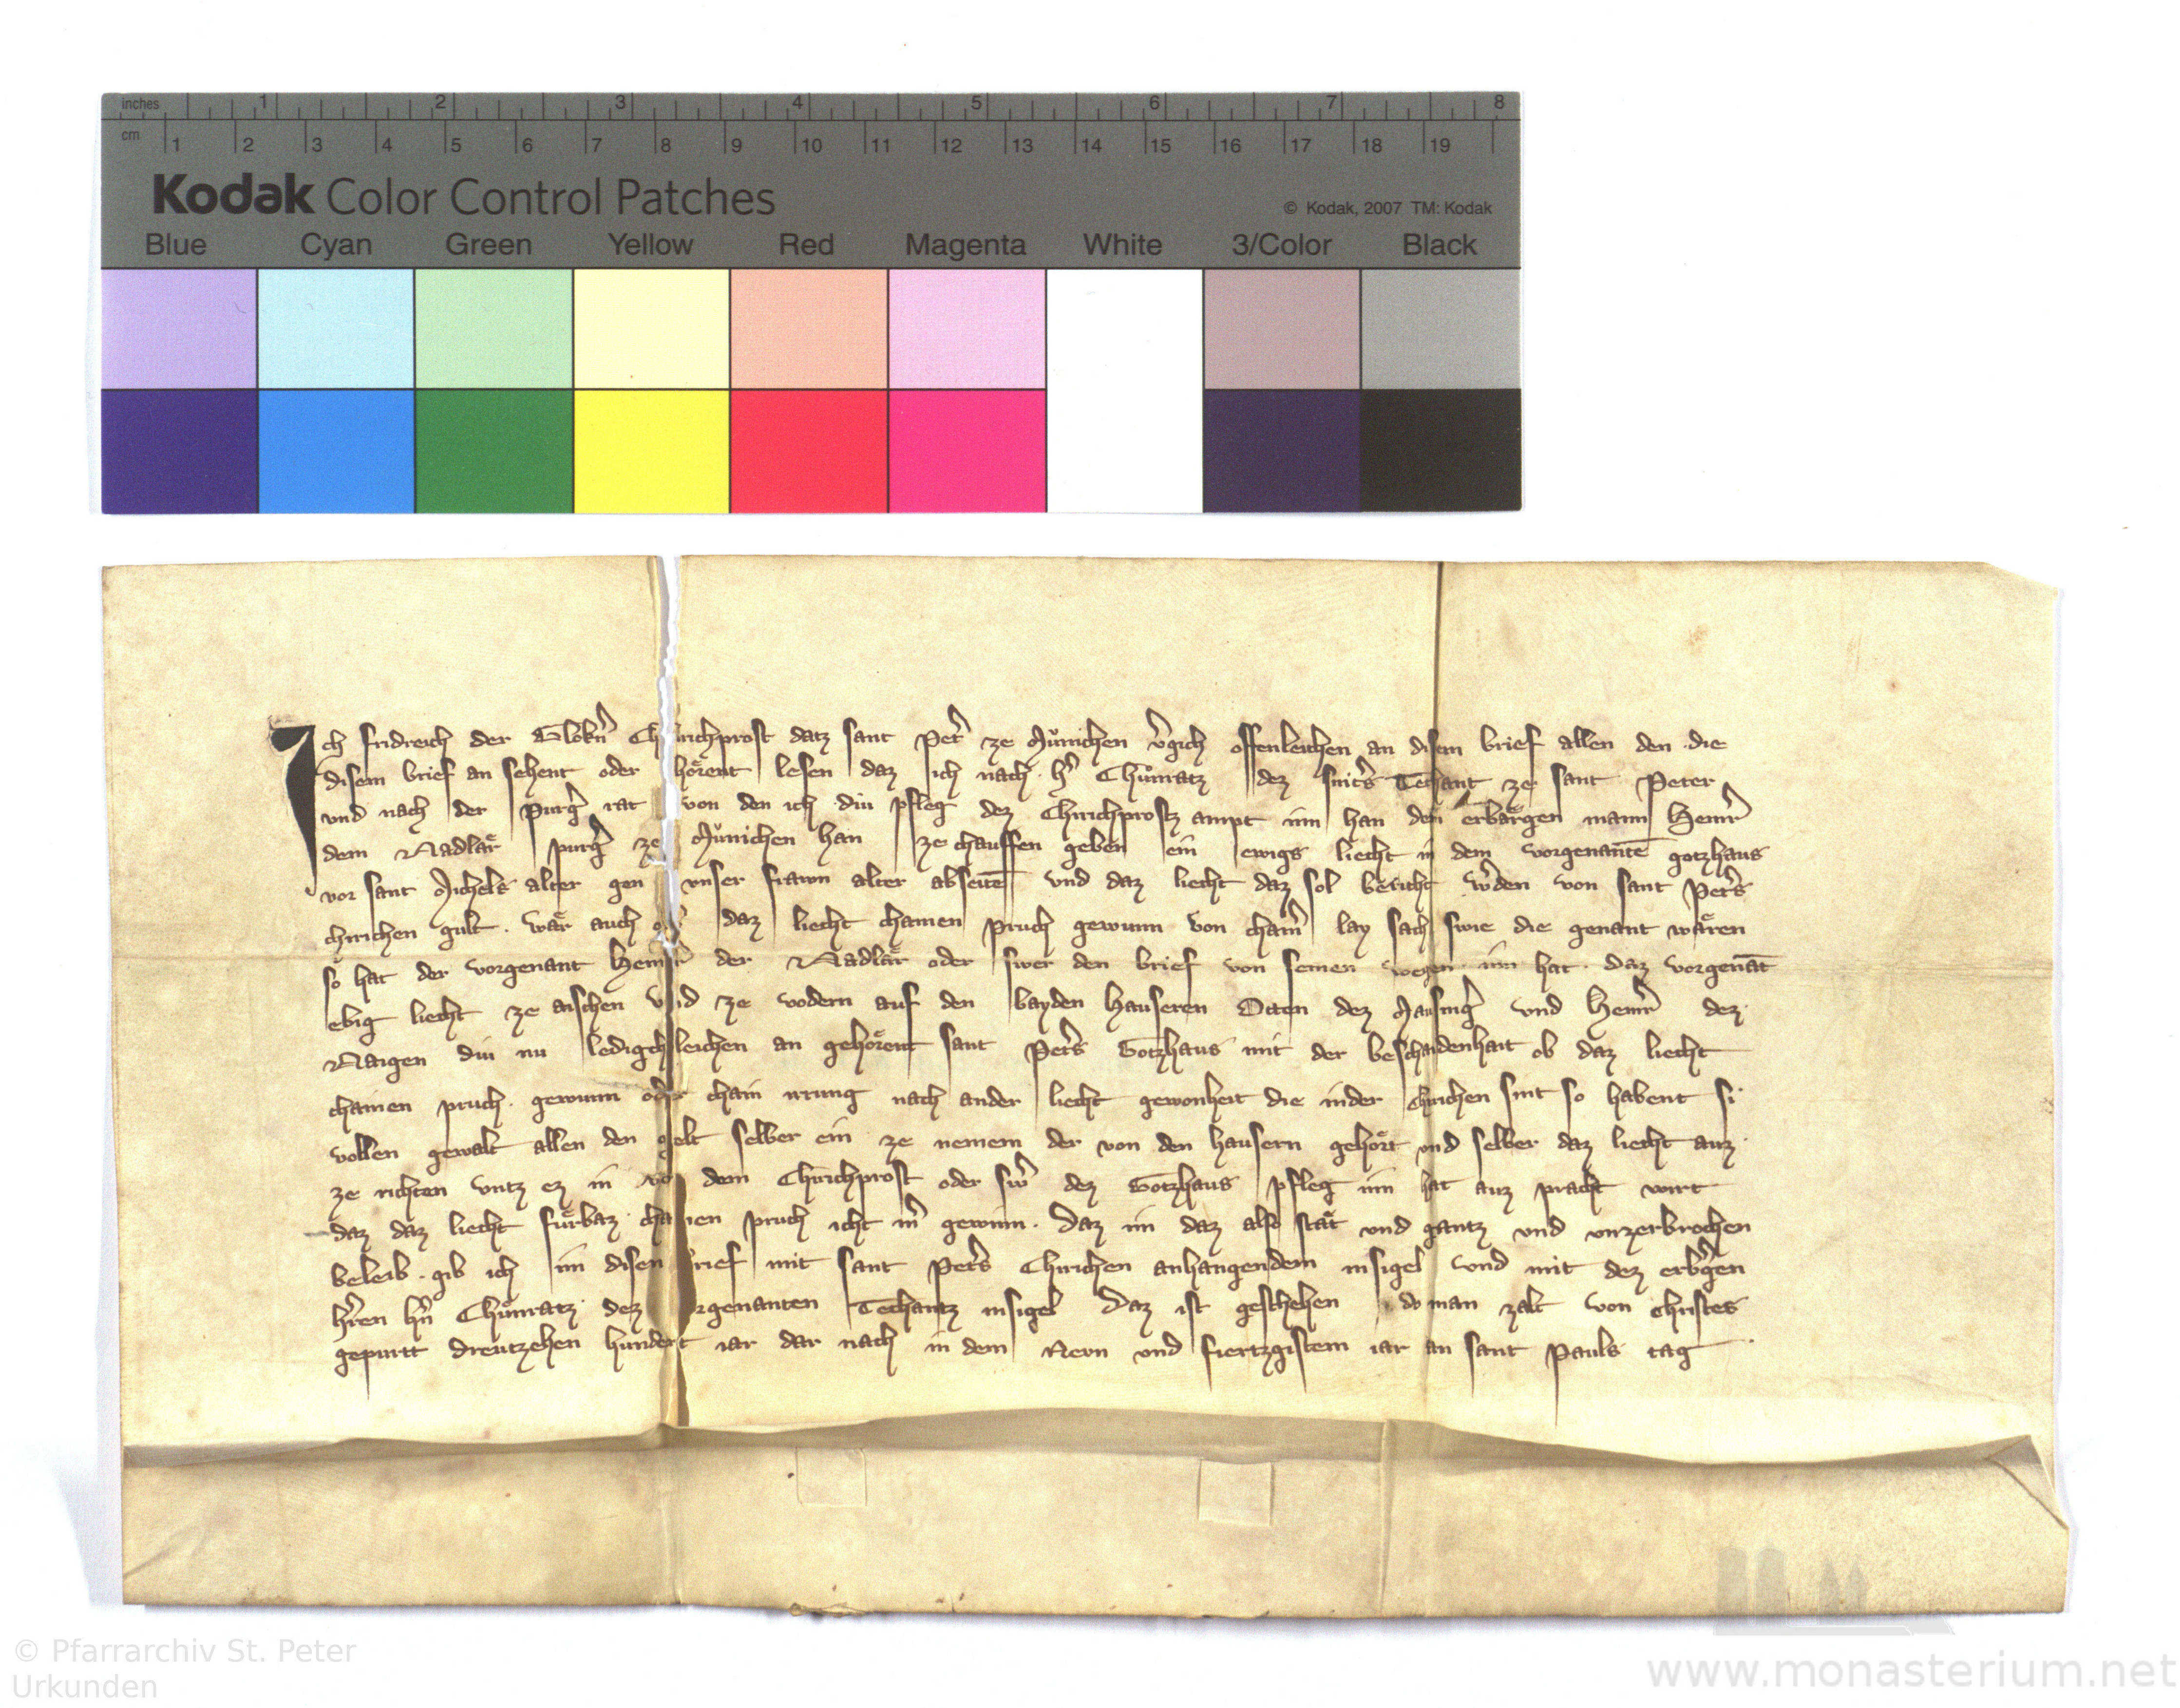 inches 1 2 3 4 5 6 7 8
cm 1 2 3 4 5 6 7 8 9 10 11 12 13 14 15 16 17 18 19
Kodak Color Control Patches
© Kodak, 2007 TM: Kodak
Blue Cyan Green Yellow Red Magenta White 3/Color Black
Ich fridreich der Glokn̄ Chirichprost datz sant Pet̄ ze Mu̇nichen v̄gich offenleichen an disem brief allen den die
disem brief an sehent oder hörent lesen daz ich nach h̄n Chůnratz dez Techant ze sant Peter
und nach der purḡ rat von den ich diu pfleg dez Chirichprostz ampt inn han dem erbärgen mann Heinr̄
dem Nadlär purḡ ze Mu̇nichen han ze chauffen geben ein ewigs liecht in dem vorgenantē gotzhaus
vor sant Michels alter gen unser frawn alter abseitē und daz liecht daz sol bericht w̄den von sant Pet̄s
chirichen gult. wär auch daz liecht chainen pruch gewunn von chain̄ lay sach swie die genant wären
so hat der vorgenant Heinr̄ der Nadlär oder swer den brief von seinen wegen inn hat. daz vorgenāt
ebig liecht ze aischen und ze vodern auf den bayden hauseren Otten dez und Heinr̄ dez
diu nu ledigchleichen an gehörent sant Pet̄s Gotzhaus mit der beschaidenhait ob daz liecht
chainen pruch. gewunn oder chain irrung nach ander liecht gewonheit die inder chirichen sint so habent si
vollen gewalt allen den gelt selber ein ze nemem der von den hausern gehört und selber daz liecht auz
ze richten untz ez in von dem Chirichprost oder sw̄ dez Gotzhaus pfleg inn hat auz pracht wirt
daz daz liecht fürbaz chainen pruch icht m̄ gewinn. Daz im daz also stät und gantz und unzerbrochen
beleib. gib ich im disen brief mit sant Pet̄s Chirichen anhangendem insigel und mit dez erb̄gen
h̄ren h̄n Chůnratz dez vorgenanten Techantz insigel Daz ist geschehen do man zalt von Christes
gepurtt dreutzehen hundert iar dar nach in dem Nevn und fiertzgistem iar an sant Pauls tag
© Pfarrarchiv St. Peter
Urkunden
www.monasterium.net